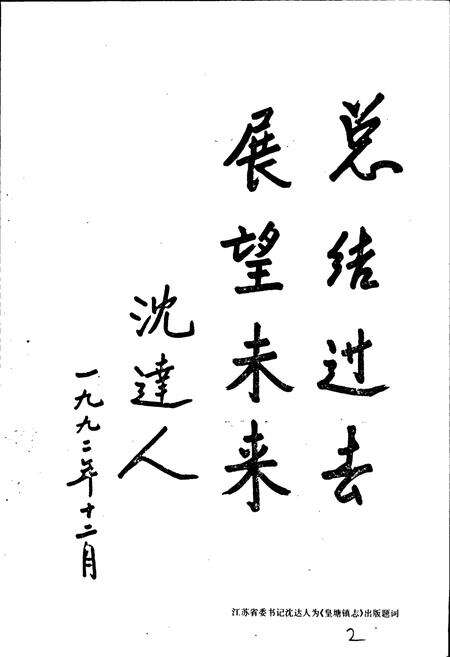 总结过去
展望未来
沈達人
一九九二年十二月
江苏省委书记沈达人为《皇塘镇志》出版题词
2